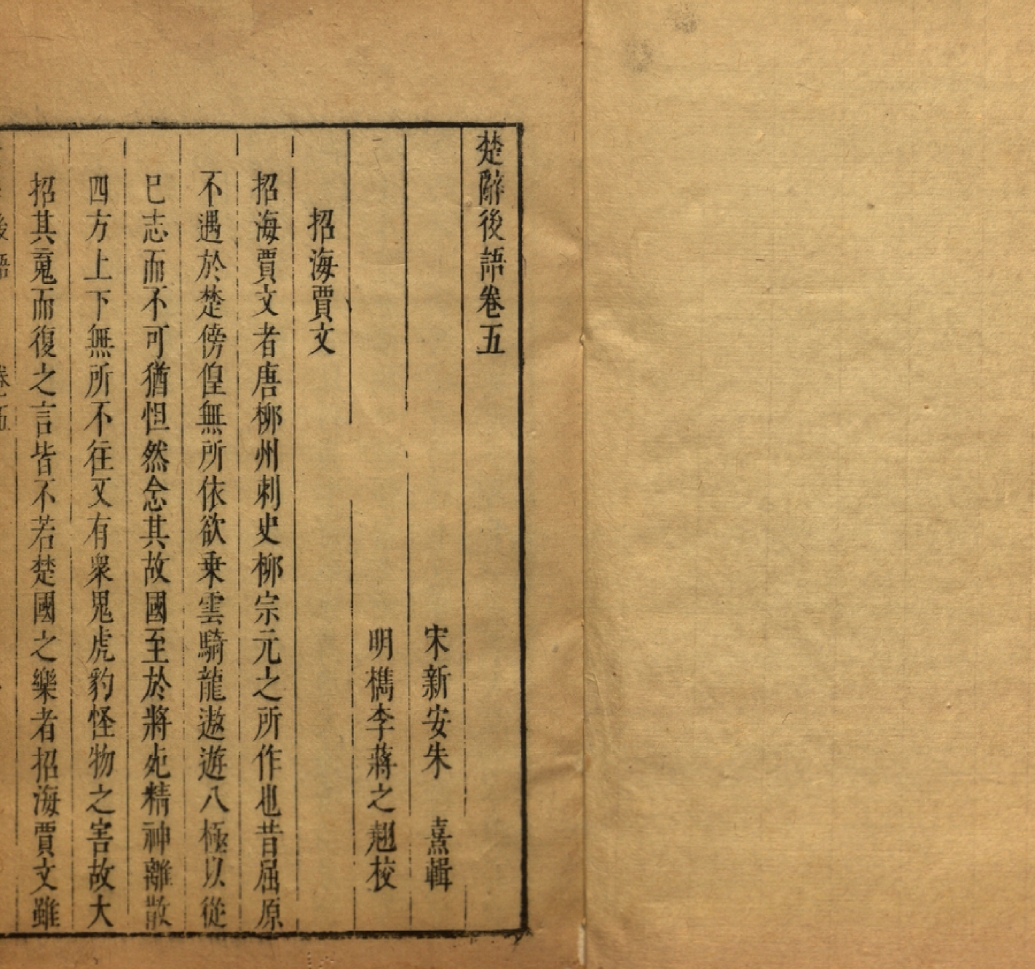 楚辭後語卷五
宋新安朱　熹輯
明檇李蔣之翹校
招海賈文
招海賈文者唐柳州刺史柳宗元之所作也昔屈原
不遇於楚傍偟無所依欲乗雲騎龍遨遊八極以從
已志而不可猶怛然念其故國至於將死精神離散
四方上下無所不往又有衆鬼虎豹怪物之害故大
招其䰟而復之言皆不若楚國之樂者招海賈文雖
後語　卷五